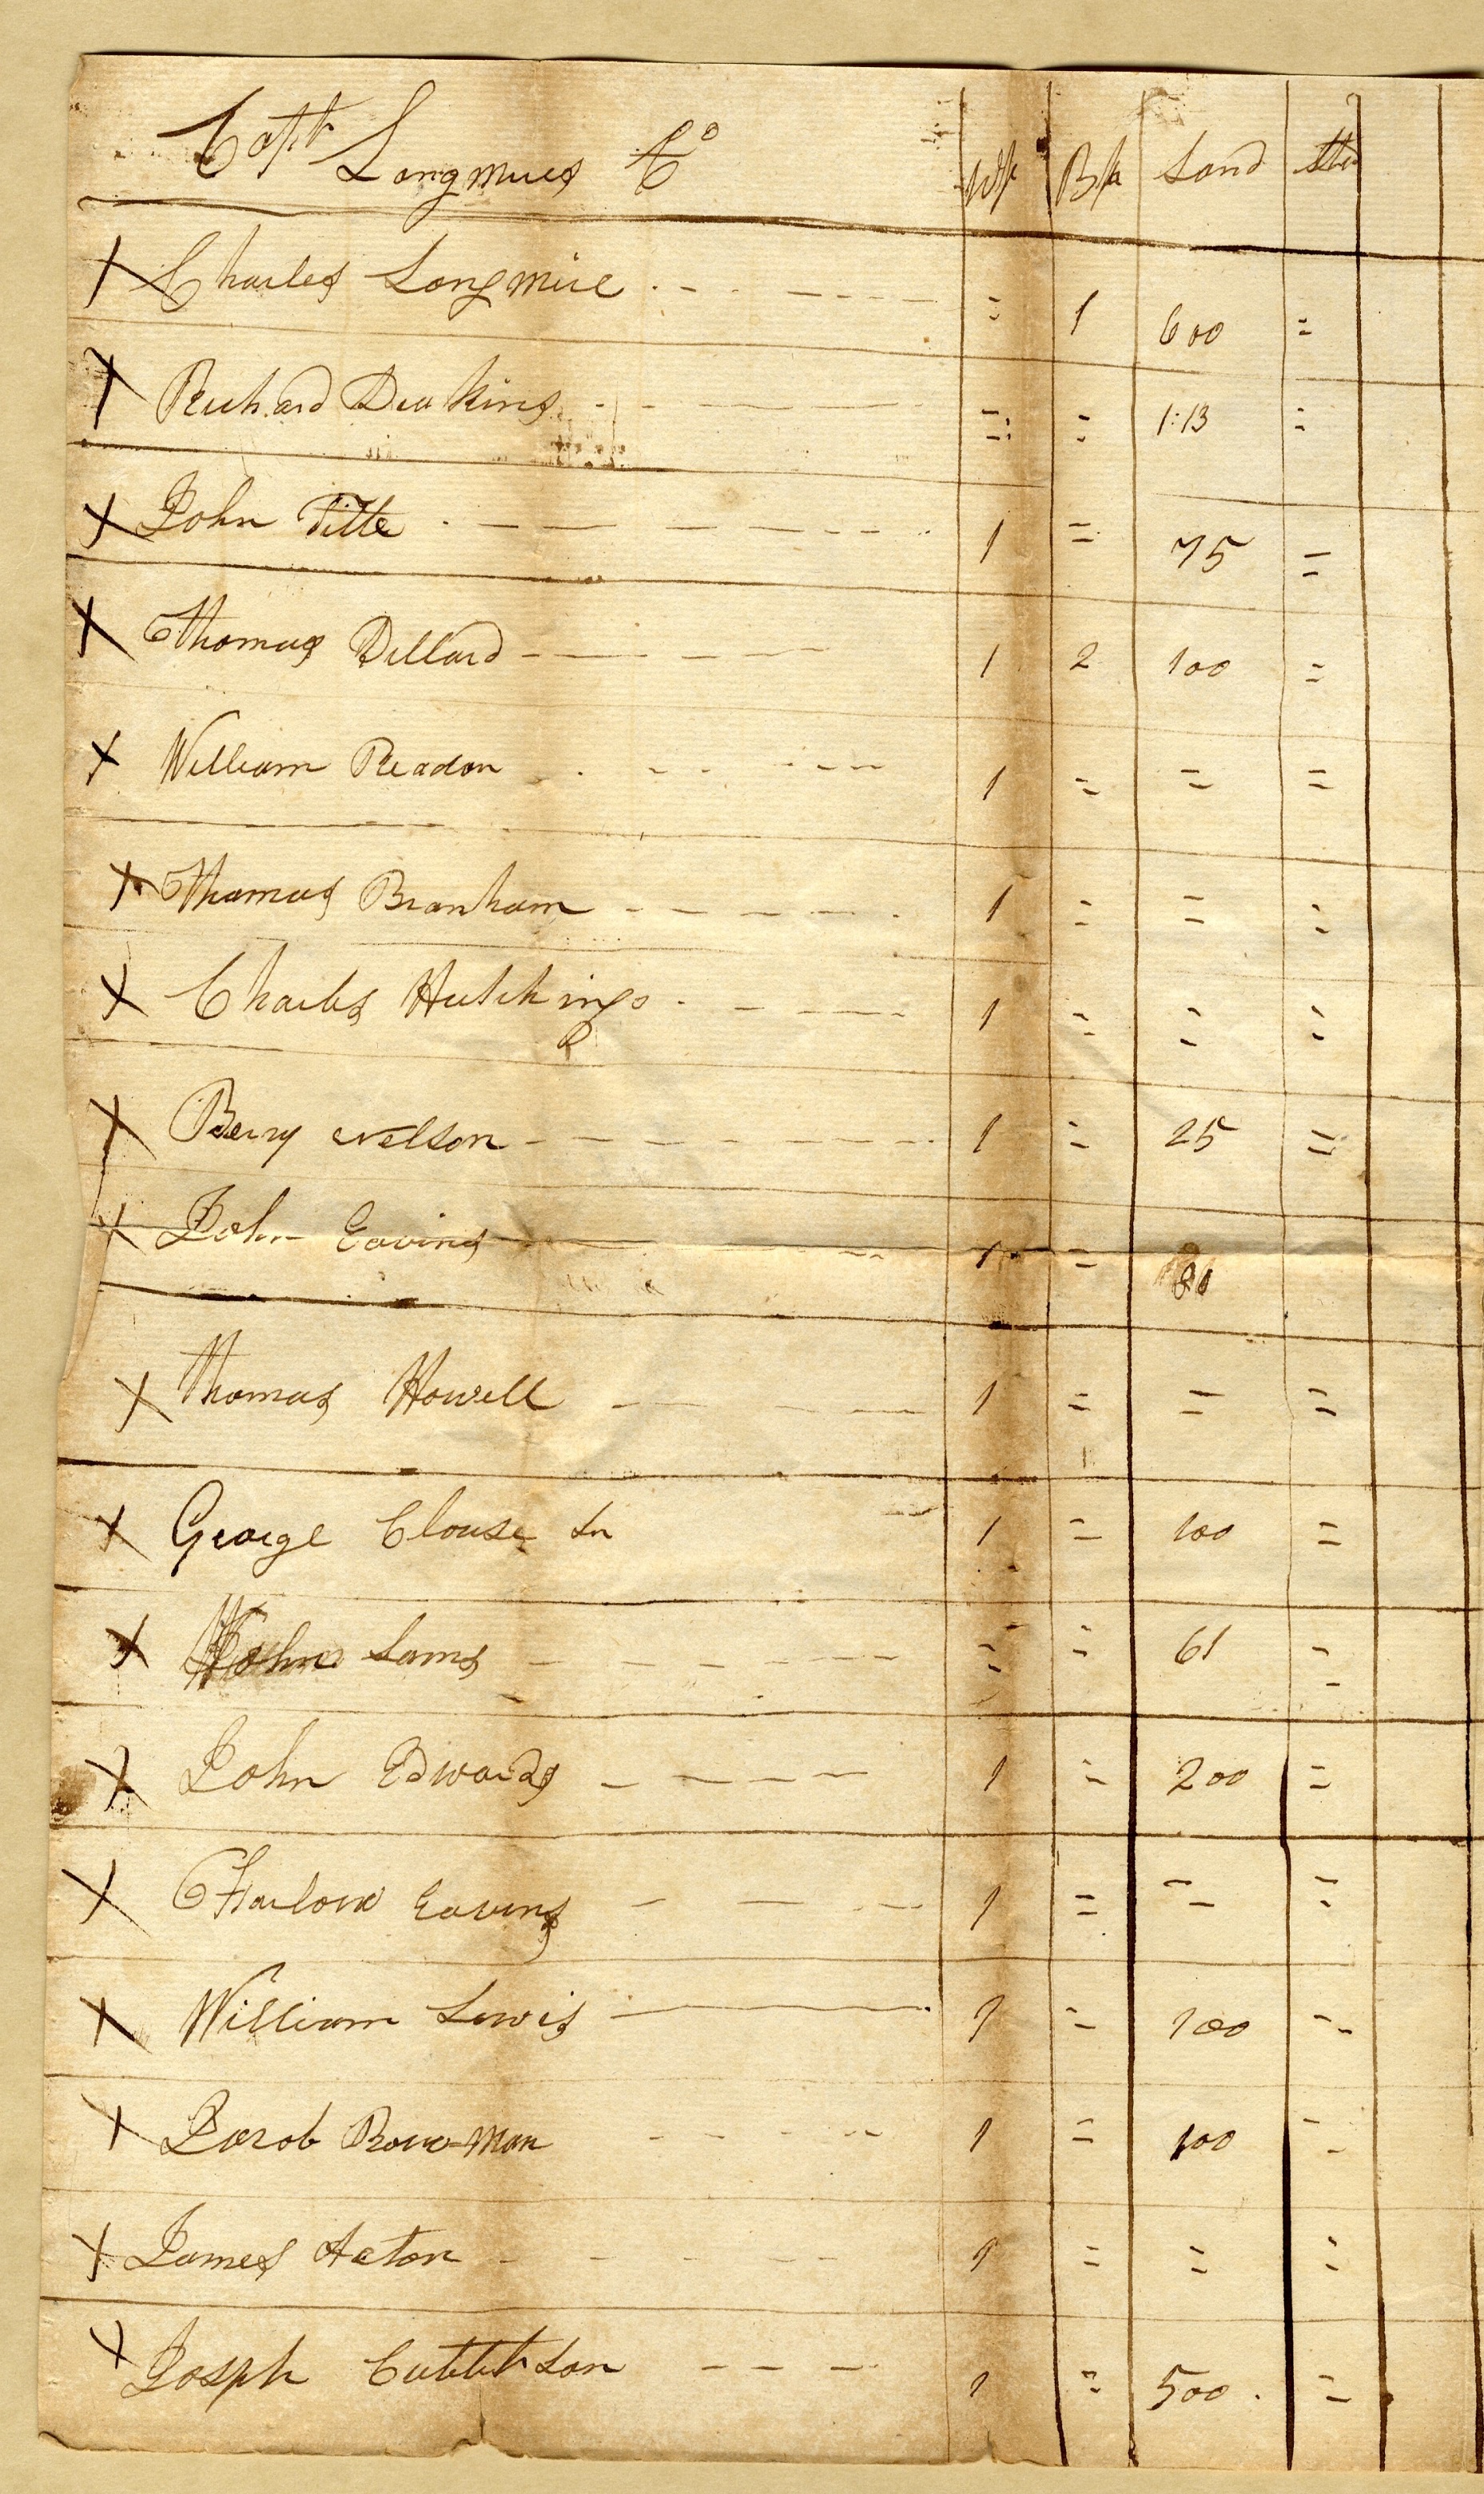 Capt Longmires Co W/p B/p Land
X Charles Longmire = 1 600 =
X Richard Deakins = = 1:13 =
X John Titte 1 = 75 =
X Thomas Dillard 1 2 100 =
X William Readon 1 = = =
X Thomas Branham 1 = = =
X Charles Hutchings 1 = = =
X Berry Nelson 1 = 25 =
X John Eavins 1 =
X Thomas Howell 1 = = =
X George Clouse Sn 1 = 100 =
X John Sams = = 61 =
X John Edwards 1 = 200 =
X Eavins 1 = = =
X William Lewis 1 = 100 =
X Jacob Bow-Man 1 = 100 =
X James Acton 1 = = =
X Joseph 1 = 500 =